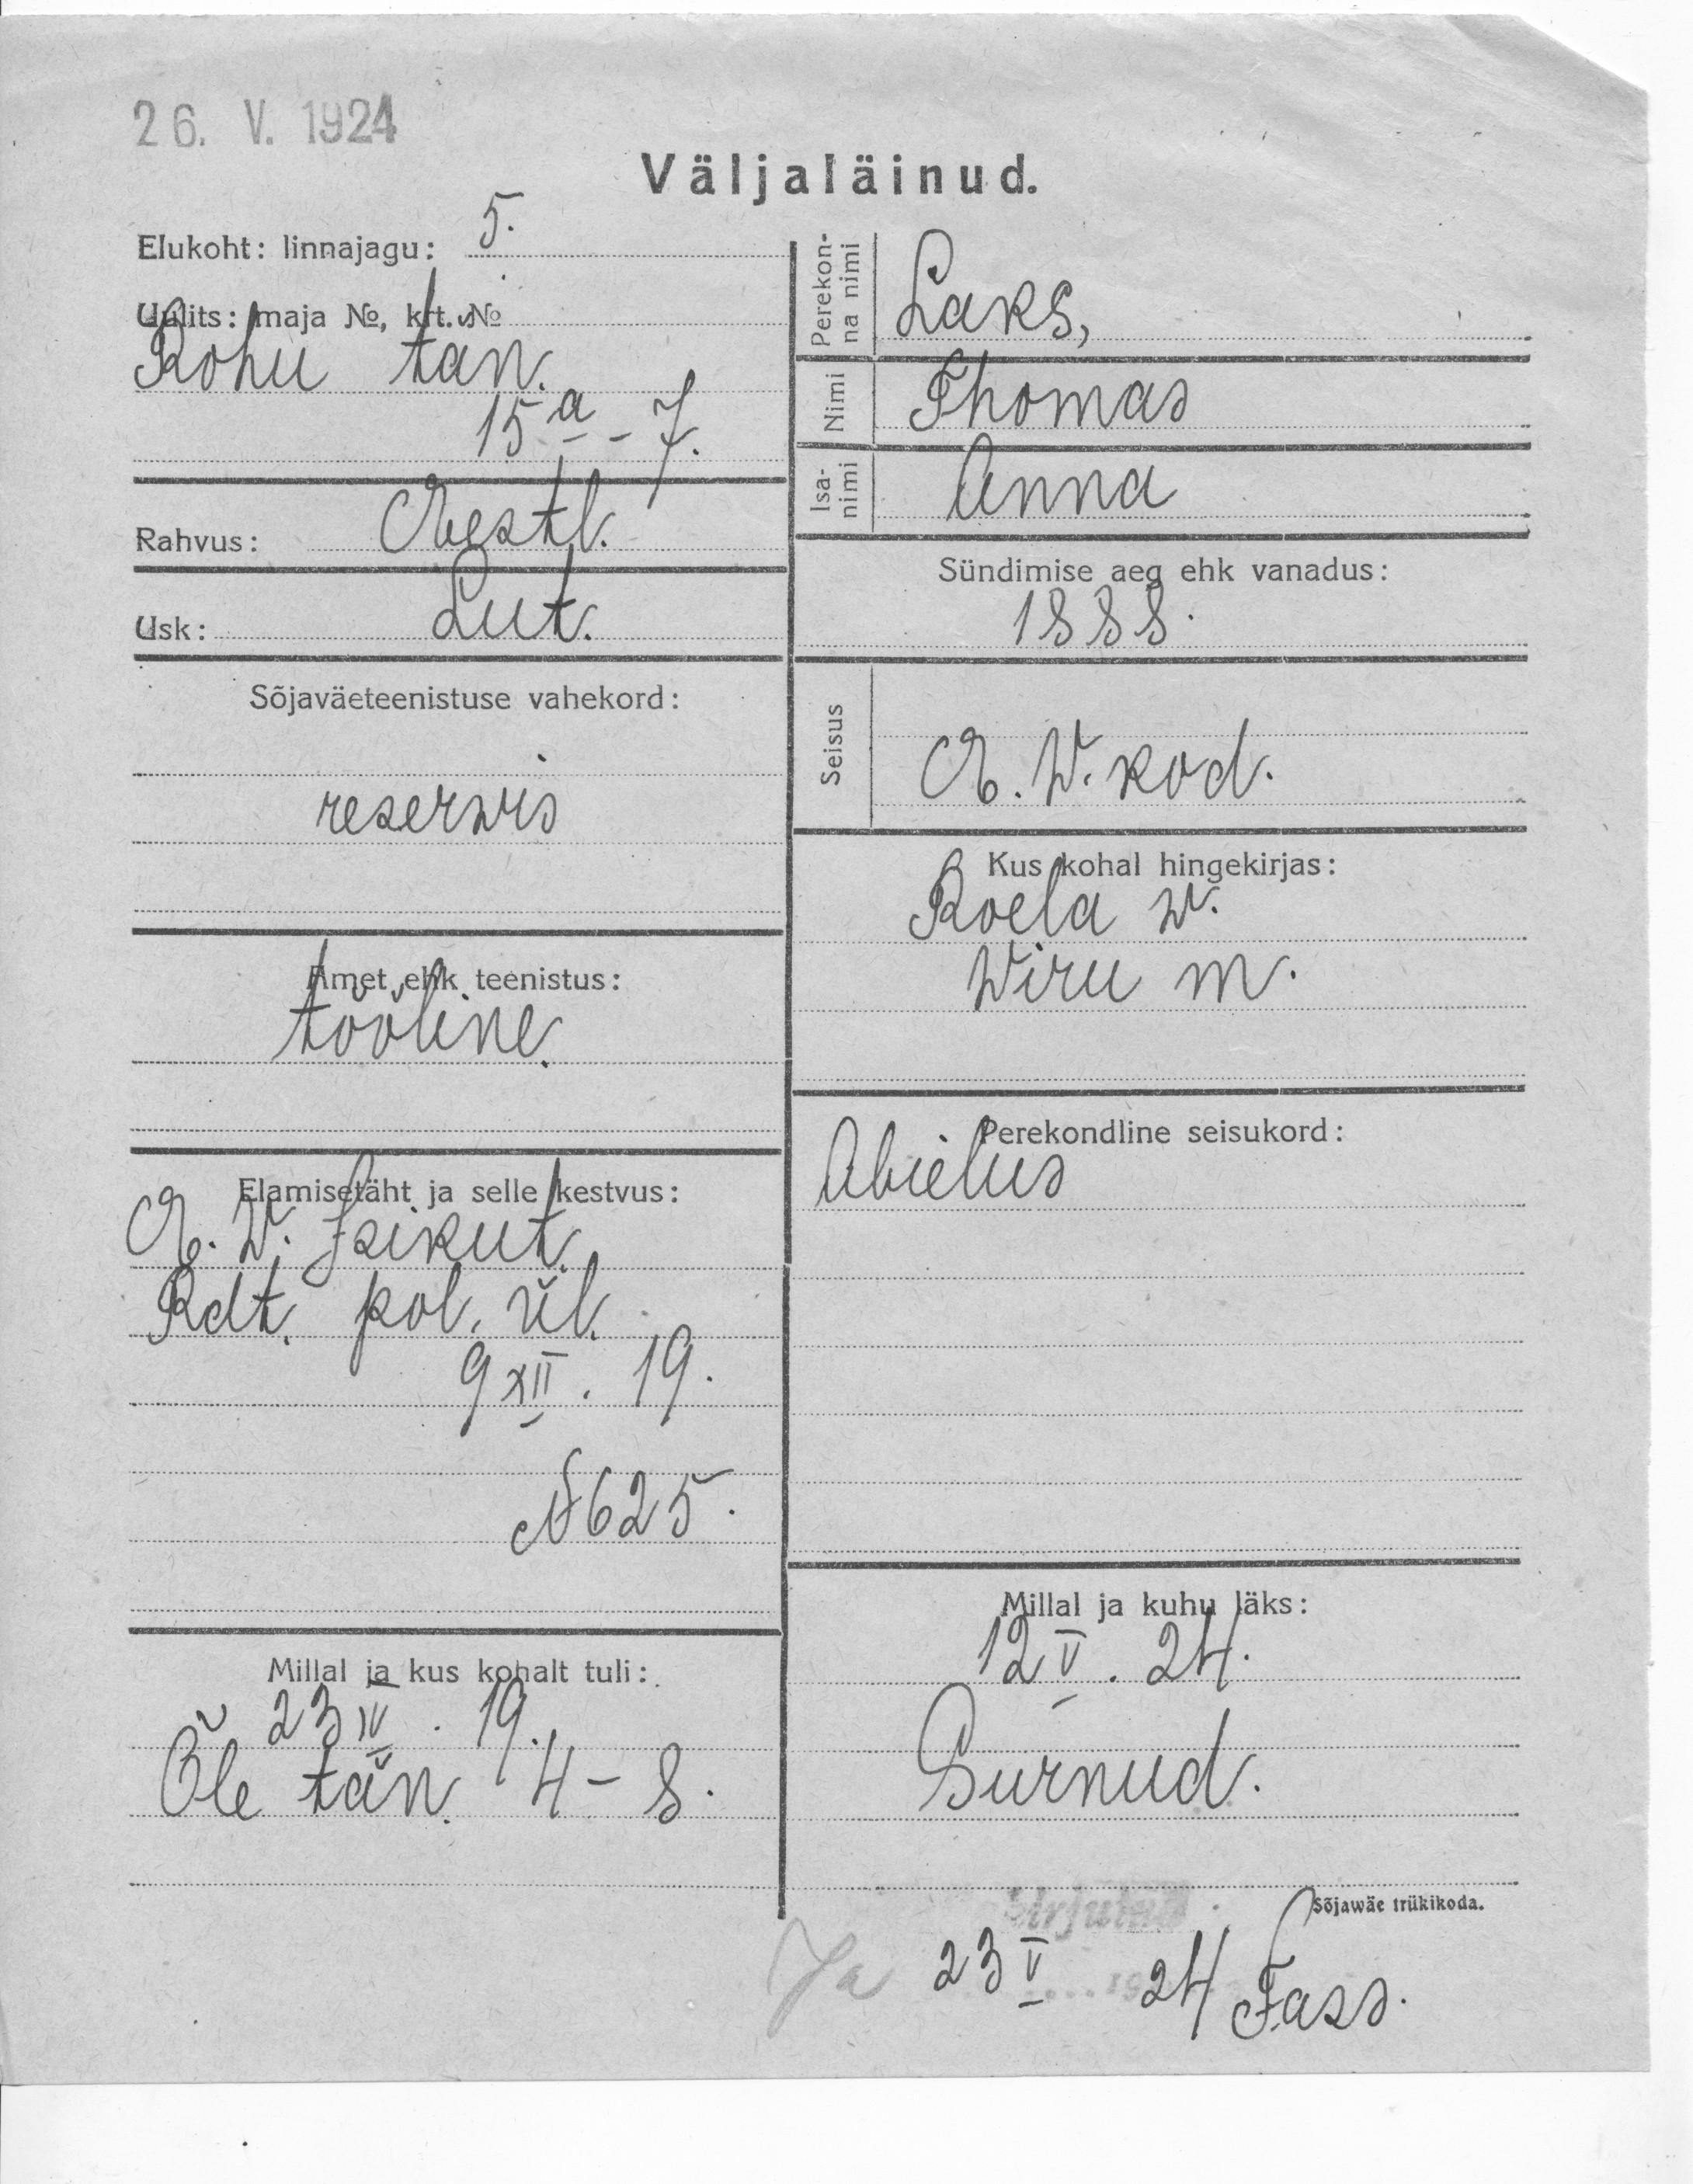 26. V. 1924
Väljaläinud.
Elukoht: linnajagu: 5.
Uulits: maja №, krt. №
Rohu tän.
15ª - 7.
Rahvus: Eestl.
Usk: Lut.
Sõjaväeteenistuse vahekord:
reserwis
Amet ehk teenistus:
tööline
Elamisetäht ja selle kestvus:
E. W. Isikut.
Rdt. pol. ül.
9 XII. 19.
№ 625.
Millal ja kus kohalt tuli:
23 IV. 19.
Õle tän. 4 - 8.
Perekonna nimi Laks,
Nimi Thomas
Isanimi Anna
Sündimise aeg ehk vanadus:
1888.
Seisus
E. W. kod.
Kus kohal hingekirjas:
Roela w.
Wiru m.
Perekondline seisukord:
Abielus
Millal ja kuhu läks:
12 V. 24.
Surnud.
Sõjawäe trükikoda.
23 V 24 Fass.